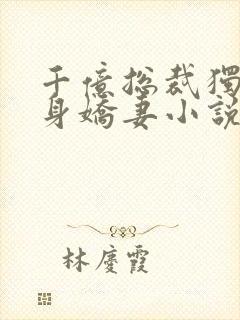 千億總裁獨
身嬌妻小說
林慶霞